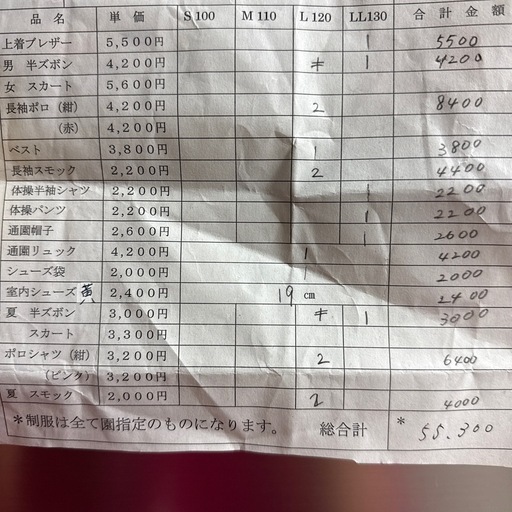 品名 単価 S100 M110 L120 LL130 合計金額
上着ブレザー 5,500円 1 5500
男 半ズボン 4,200円 1 4200
女 スカート 5,600円
長袖ポロ（紺） 4,200円 2 8400
（赤） 4,200円
ベスト 3,800円 1 3800
長袖スモック 2,200円 2 4400
体操半袖シャツ 2,200円 1 2200
体操パンツ 2,200円 1 2200
通園帽子 2,600円 1 2600
通園リュック 4,200円 1 4200
シューズ袋 2,000円 1 2000
室内シューズ 黄 2,400円 19 cm 2400
夏 半ズボン 3,000円 1 3000
スカート 3,300円
ポロシャツ（紺） 3,200円 2 6400
（ピンク） 3,200円
夏 スモック 2,000円 2 4000
＊制服は全て園指定のものになります。 総合計 * 55.300